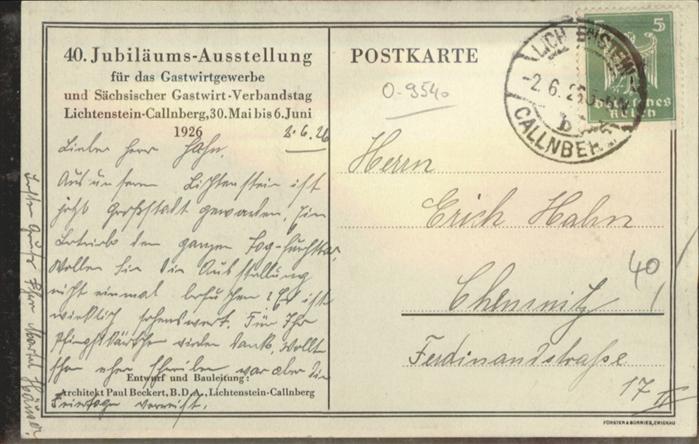 40. Jubiläums-Ausstellung
für das Gastwirtgewerbe
und Sächsischer Gastwirt-Verbandstag
Lichtenstein-Callnberg, 30. Mai bis 6. Juni
1926
8.6.26
Lieber Herr Hahn.
Aus unserm Lichtenstein ist
jetzt Großstadt geworden. Ein
Betrieb den ganzen Tag
Wollen Sie die Ausstellung
nicht einmal besuchen? Es ist
wirklich sehenswert. Für Ihr
Pfingstkärtchen vielen Dank, wollte
schon eher schreiben war aber die
Feiertage verreist.
Entwurf und Bauleitung:
Architekt Paul Beckert, B.D.A., Lichtenstein-Callnberg
POSTKARTE
O-9540
5
Deutsches
Reich
LICHTENSTEIN-
-2.6.26
CALLNBERG
Herrn
Erich Hahn
40
Chemnitz
Ferdinandstraße
17 II
FÖRSTER & BORRIES, ZWICKAU